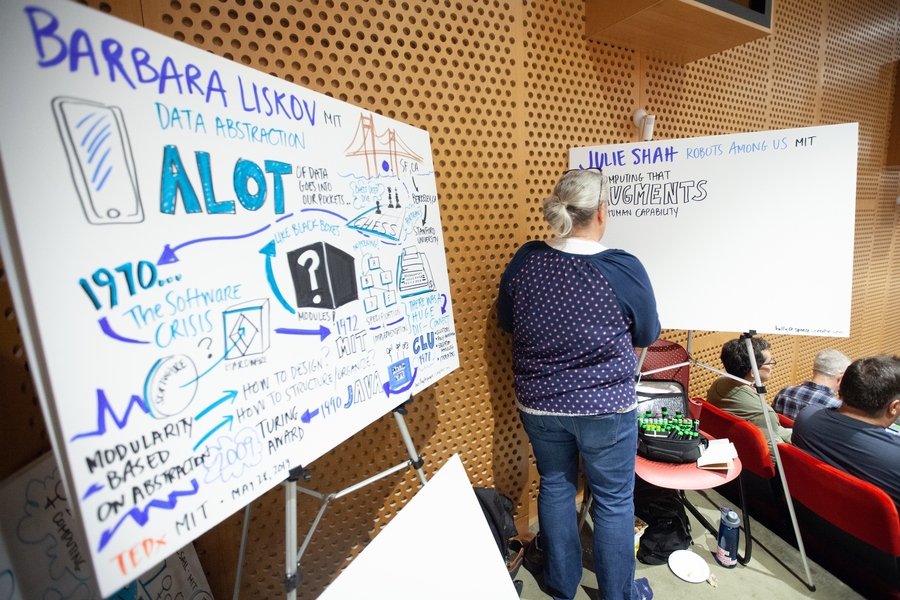 BARBARA LISKOV MIT
DATA ABSTRACTION
ALOT
OF DATA
GOES INTO
OUR POCKETS...
SF, CA
BERKELEY, CA
STANFORD
UNIVERSITY
CHESS
1970...
The SOFTWARE
CRISIS
LIKE BLACK BOXES
?
MODULES
?
SOFTWARE
HARDWARE
SPECIFICATION
IMPLEMENTATION
1972
MIT
THERE WAS A
HUGE
DIS-CONNECT
CLU
1970s
HOW TO DESIGN?
HOW TO STRUCTURE/ORGANIZE?
1990 JAVA
MODULARITY
- BASED
ON ABSTRACTION
2009
TURING
AWARD
TEDx MIT • MAY 28, 2019
JULIE SHAH ROBOTS AMONG US MIT
MPUTING THAT
AUGMENTS
HUMAN CAPABILITY
COMPUTING